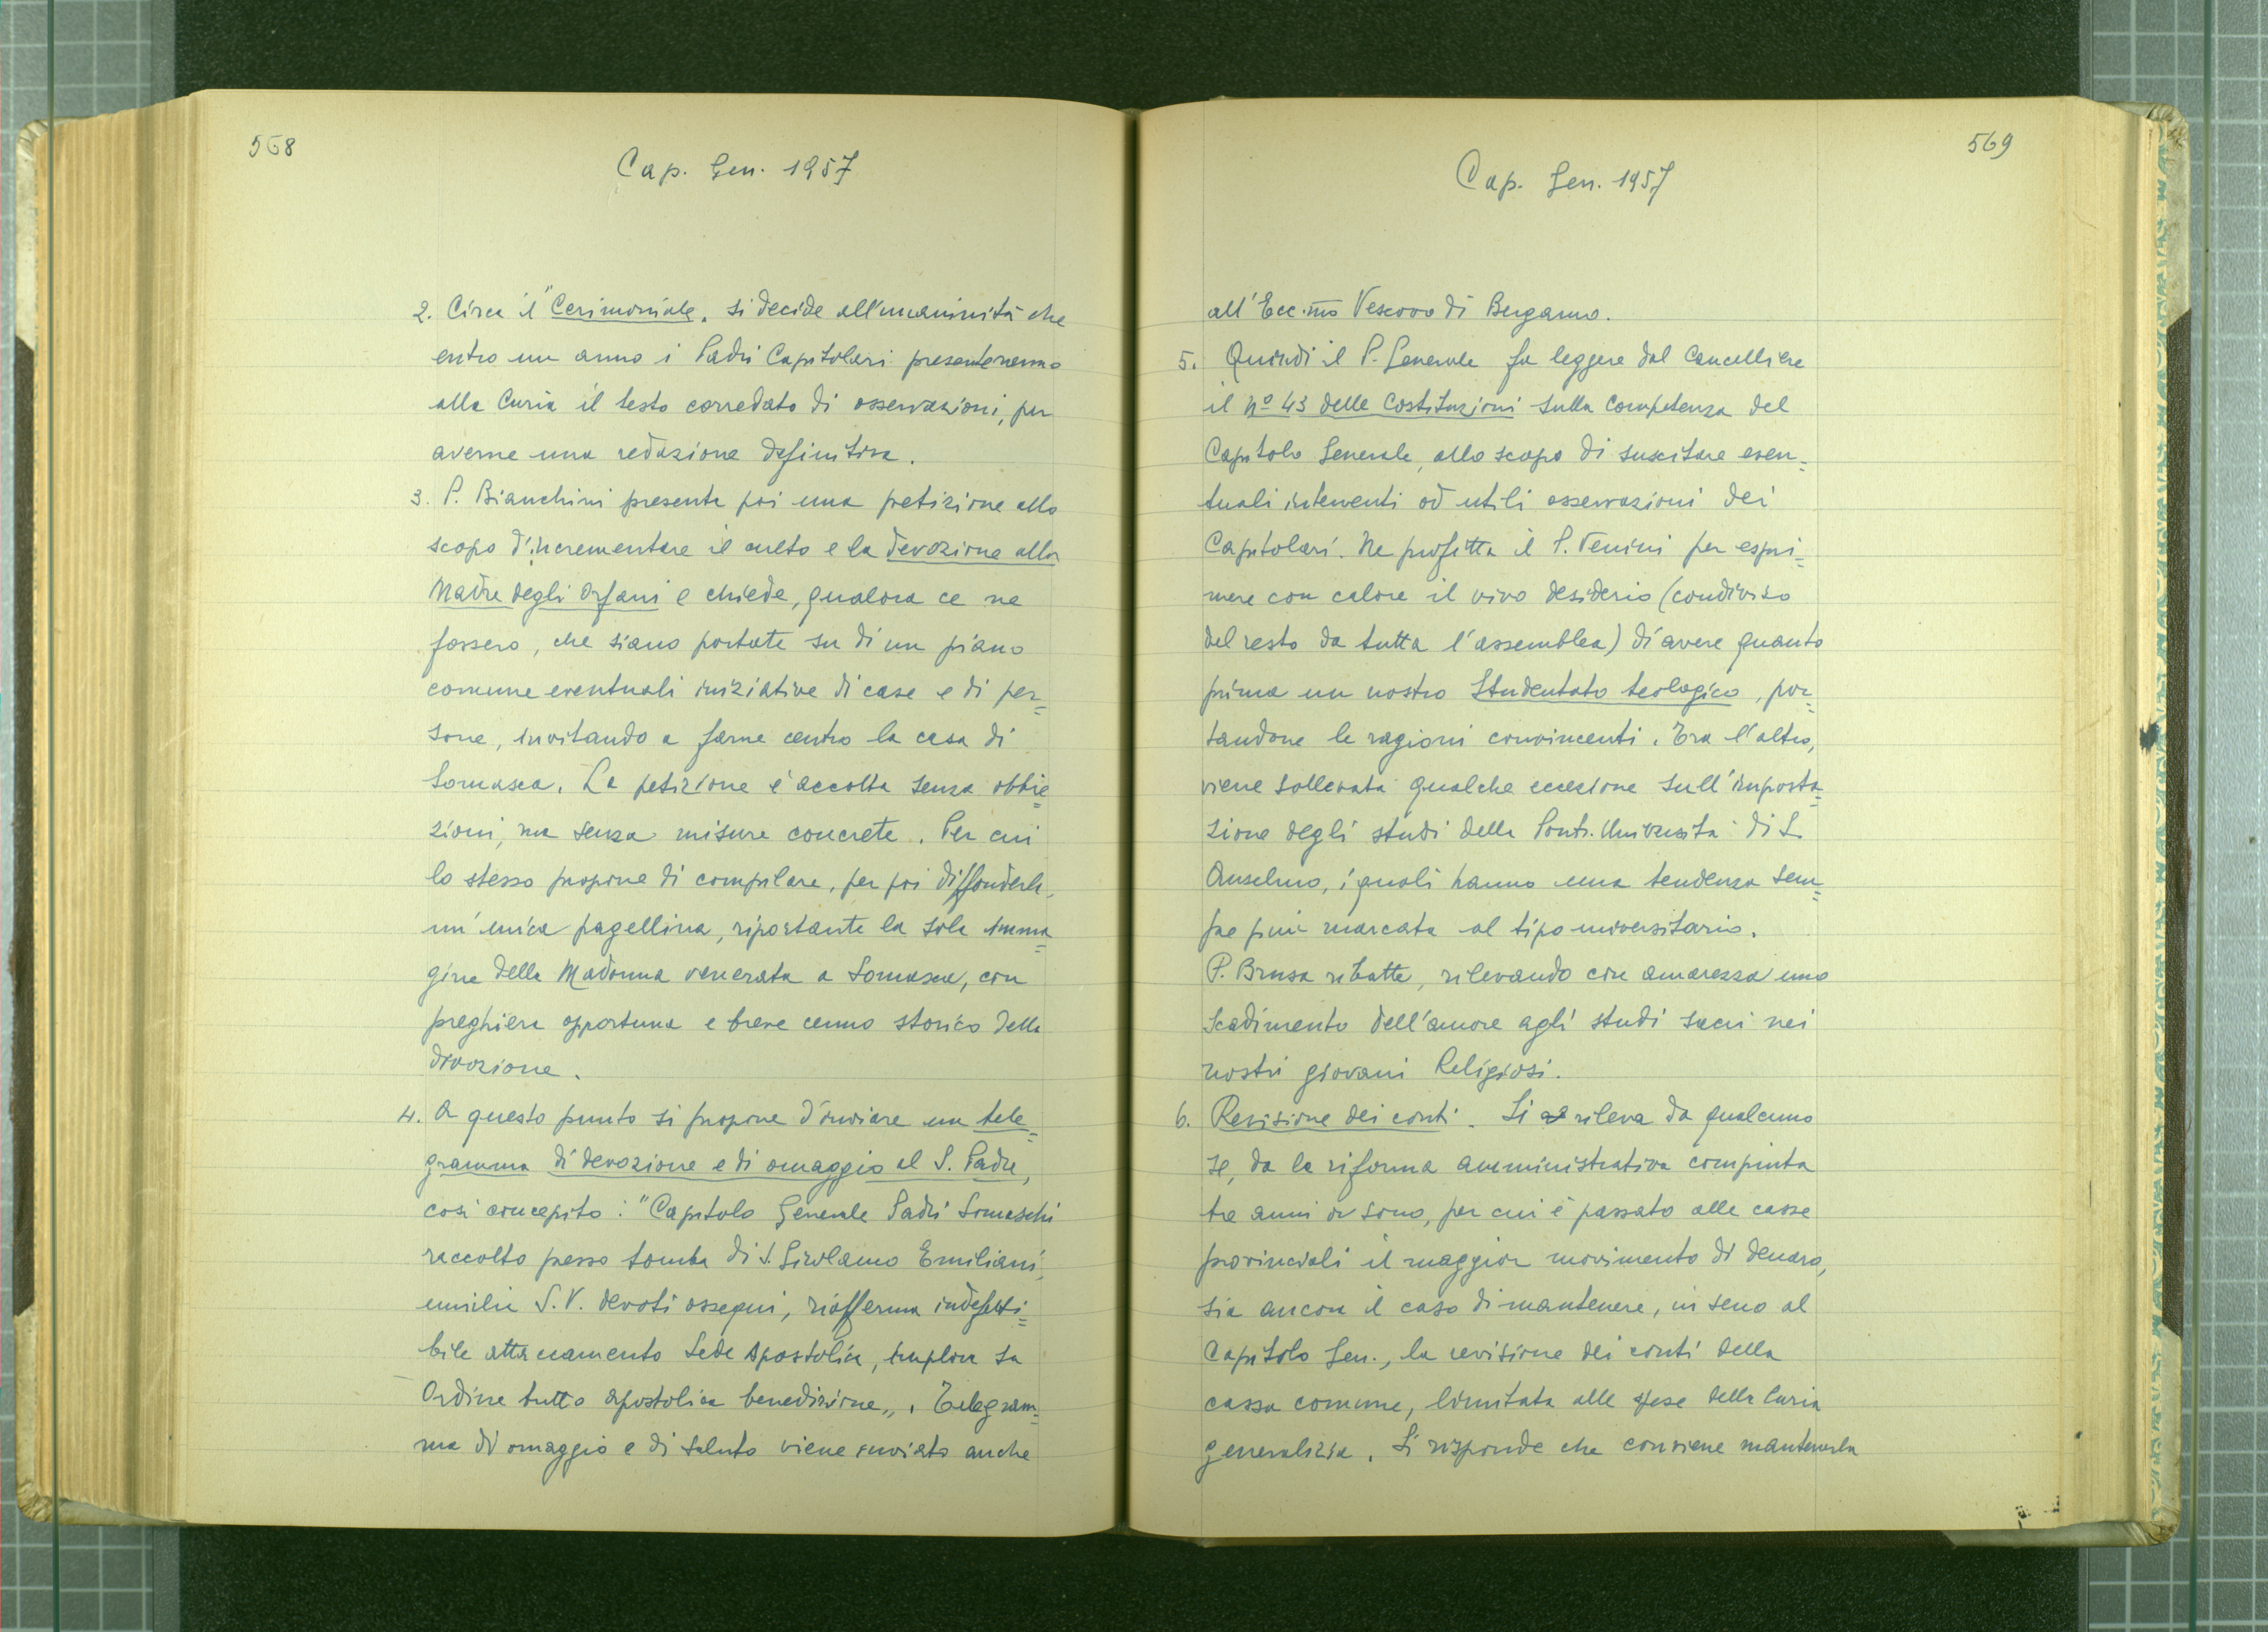 568
Cap. Gen. 1957
2. Circa il "Cerimoniale" si decide all'unanimità che
entro un anno i Padri Capitolari presenteranno
alla Curia il testo corredato di osservazioni, per
averne una redazione definitiva.
3. P. Bianchini presenta poi una petizione allo
scopo d'incrementare il culto e la devozione alla
Madre degli Orfani e chiede, qualora ce ne
fossero, che siano portate su di un piano
comune eventuali iniziative di case e di per=
sone, invitando a farne centro la casa di
Somasca. La petizione è accolta senza obbie=
zioni, ma senza misure concrete. Per cui
lo stesso propone di compilare, per poi diffonderla,
un'unica pagellina, riportante la sola imma=
gine della Madonna venerata a Somasca, con
preghiera opportuna e breve cenno storico della
divozione.
4. A questo punto si propone d'inviare un tele=
gramma di devozione e di omaggio al S. Padre,
così concepito: "Capitolo Generale Padri Somaschi
raccolto presso tomba di S. Girolamo Emiliani,
umilia S. V. devoti ossequi, riafferma indefetti=
bile attaccamento Sede Apostolica, implora su
Ordine tutto apostolica benedizione". Telegram=
ma di omaggio e di saluto viene inviato anche
569
Cap. Gen. 1957
all'Ecc.mo Vescovo di Bergamo.
5. Quindi il P. Generale fa leggere dal Cancelliere
il nº 43 delle Costituzioni sulla competenza del
Capitolo Generale, allo scopo di suscitare even=
tuali interventi od utili osservazioni dei
Capitolari. Ne profitta il P. Venini per espri=
mere con calore il vivo desiderio (condiviso
del resto da tutta l'assemblea) di avere quanto
prima un nostro Studentato teologico, por=
tandone le ragioni convincenti. Tra l'altro,
viene sollevata qualche eccezione sull'imposta=
zione degli studi della Pont. Università di S.
Anselmo, i quali hanno una tendenza sem=
pre più marcata al tipo universitario.
P. Brusa ribatte, rilevando con amarezza uno
scadimento dell'amore agli studi sacri nei
nostri giovani Religiosi.
6. Revisione dei conti. Si rileva da qualcuno
se, da la riforma amministrativa compiuta
tre anni or sono, per cui è passato alle casse
provinciali il maggior movimento di denaro,
sia ancora il caso di mantenere, in seno al
Capitolo Gen., la revisione dei conti della
cassa comune, limitata alle spese della Curia
generalizia. Si risponde che conviene mantenerla